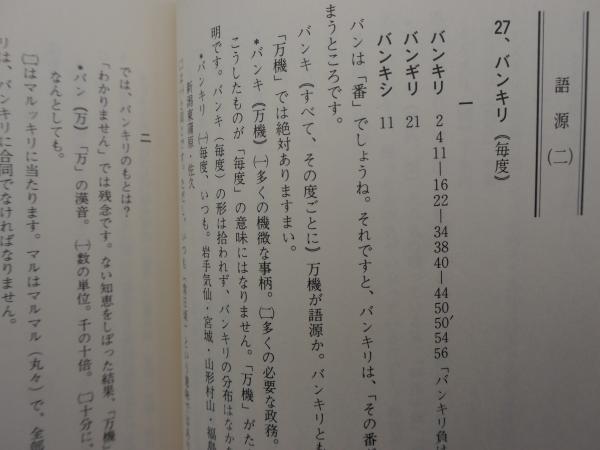 語源(二)
27、バンキリ《毎度》
一
バンキリ 2 4 11―16 22―34 38 40―44 50 50′ 54 56 「バンキリ負け
バンギリ 21
バンキシ 11
バンは「番」でしょうね。それですと、バンキリは、「その番が
まうところです。
バンキ《すべて、その度ごとに》万機が語源か。バンキリとも
「万機」では絶対ありますまい。
*バンキ《万機》㈠多くの機微な事柄。㈡多くの必要な政務。
こうしたものが「毎度」の意味にはなりません。「万機」がた
明です。バンキ《毎度》の形は拾われず、バンキリの分布はなか
*バンキリ ㈠毎度、いつも。岩手気仙・宮城・山形村山・福島
新潟東蒲原・佐久
二
では、バンキリのもとは?
「わかりません」では残念です。ない知恵をしぼった結果、「万機」
*バン《万》「万」の漢音。㈠数の単位。千の十倍。㈡十分に、
なんとしても。
㈡はマルッキリに当たります。マルはマルマル(丸々)で、全部
リは、バンキリに合同でなければなりません。